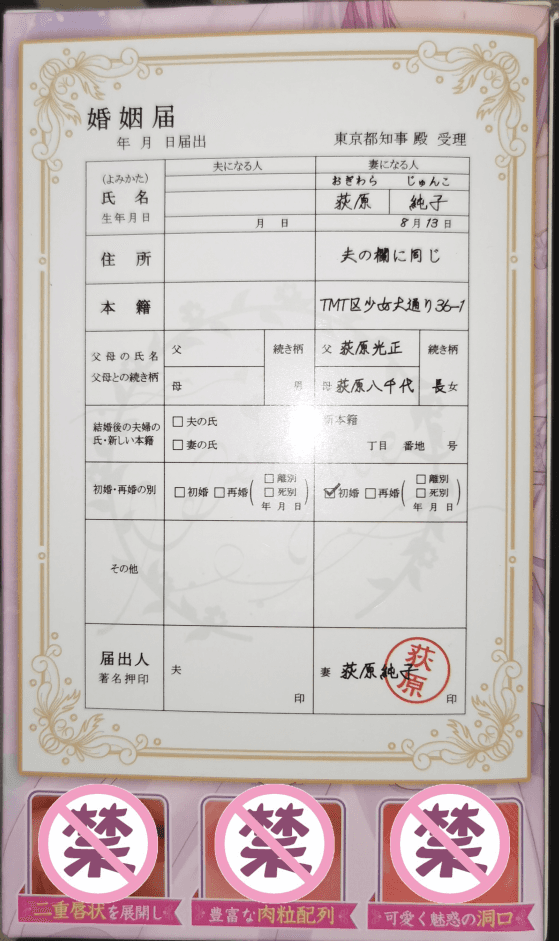 婚姻届
年 月 日届出
東京都知事 殿 受理
夫になる人
妻になる人
(よみかた)
氏名
生年月日
おぎわら じゅんこ
荻原 純子
月 日
8月13日
住所
夫の欄に同じ
本籍
TMT区少女犬通り36-1
父母の氏名
父母との続き柄
父
母
続き柄
男
父 荻原光正
母 荻原八千代
続き柄
長女
結婚後の夫婦の
氏・新しい本籍
夫の氏
妻の氏
新本籍
丁目 番地 号
初婚・再婚の別
初婚 再婚 (離別 死別 年 月 日)
初婚 再婚 (離別 死別 年 月 日)
その他
届出人
著名押印
夫
印
妻 荻原純子
荻原
印
禁
禁
禁
二重唇状を展開し
豊富な肉粒配列
可愛く魅惑の洞口